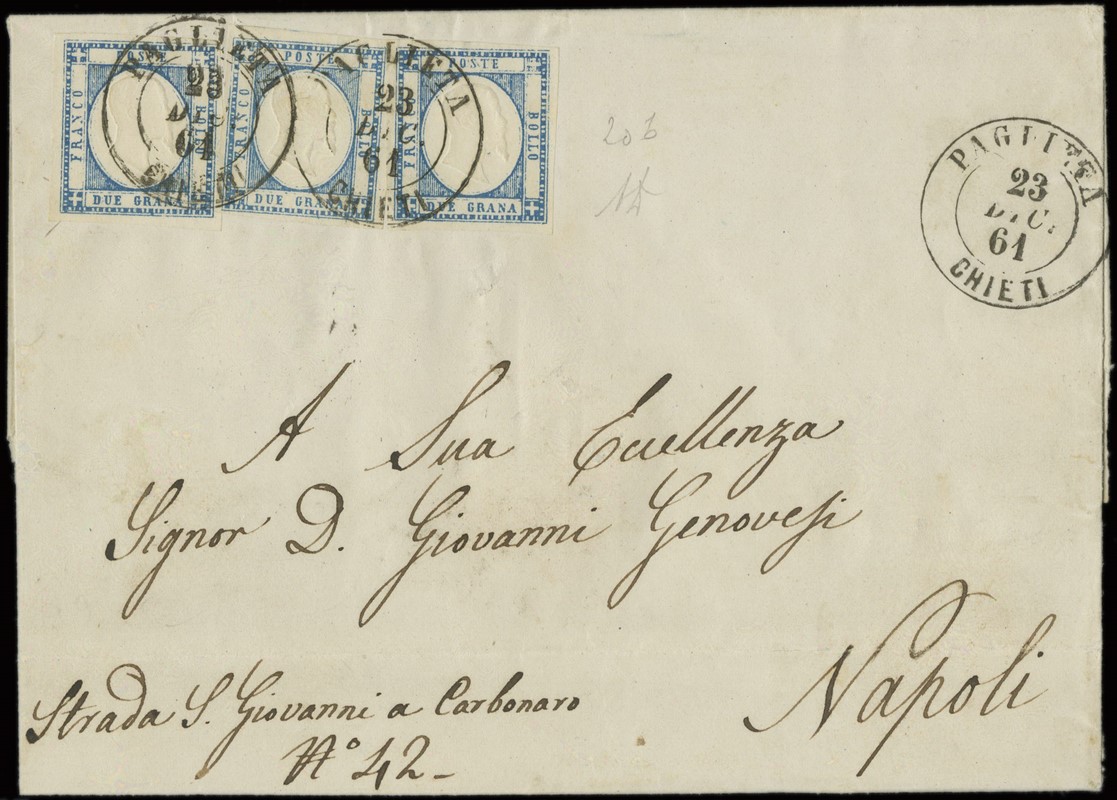 POSTE
FRANCO
BOLLO
DUE GRANA
POSTE
FRANCO
BOLLO
DUE GRANA
POSTE
FRANCO
BOLLO
DUE GRANA
PAGLIETA
23
DIC.
61
CHIETI
PAGLIETA
23
DIC.
61
CHIETI
PAGLIETA
23
DIC.
61
CHIETI
A Sua Eccellenza
Signor D. Giovanni Genovesi
Napoli
Strada S. Giovanni a Carbonaro
N° 42